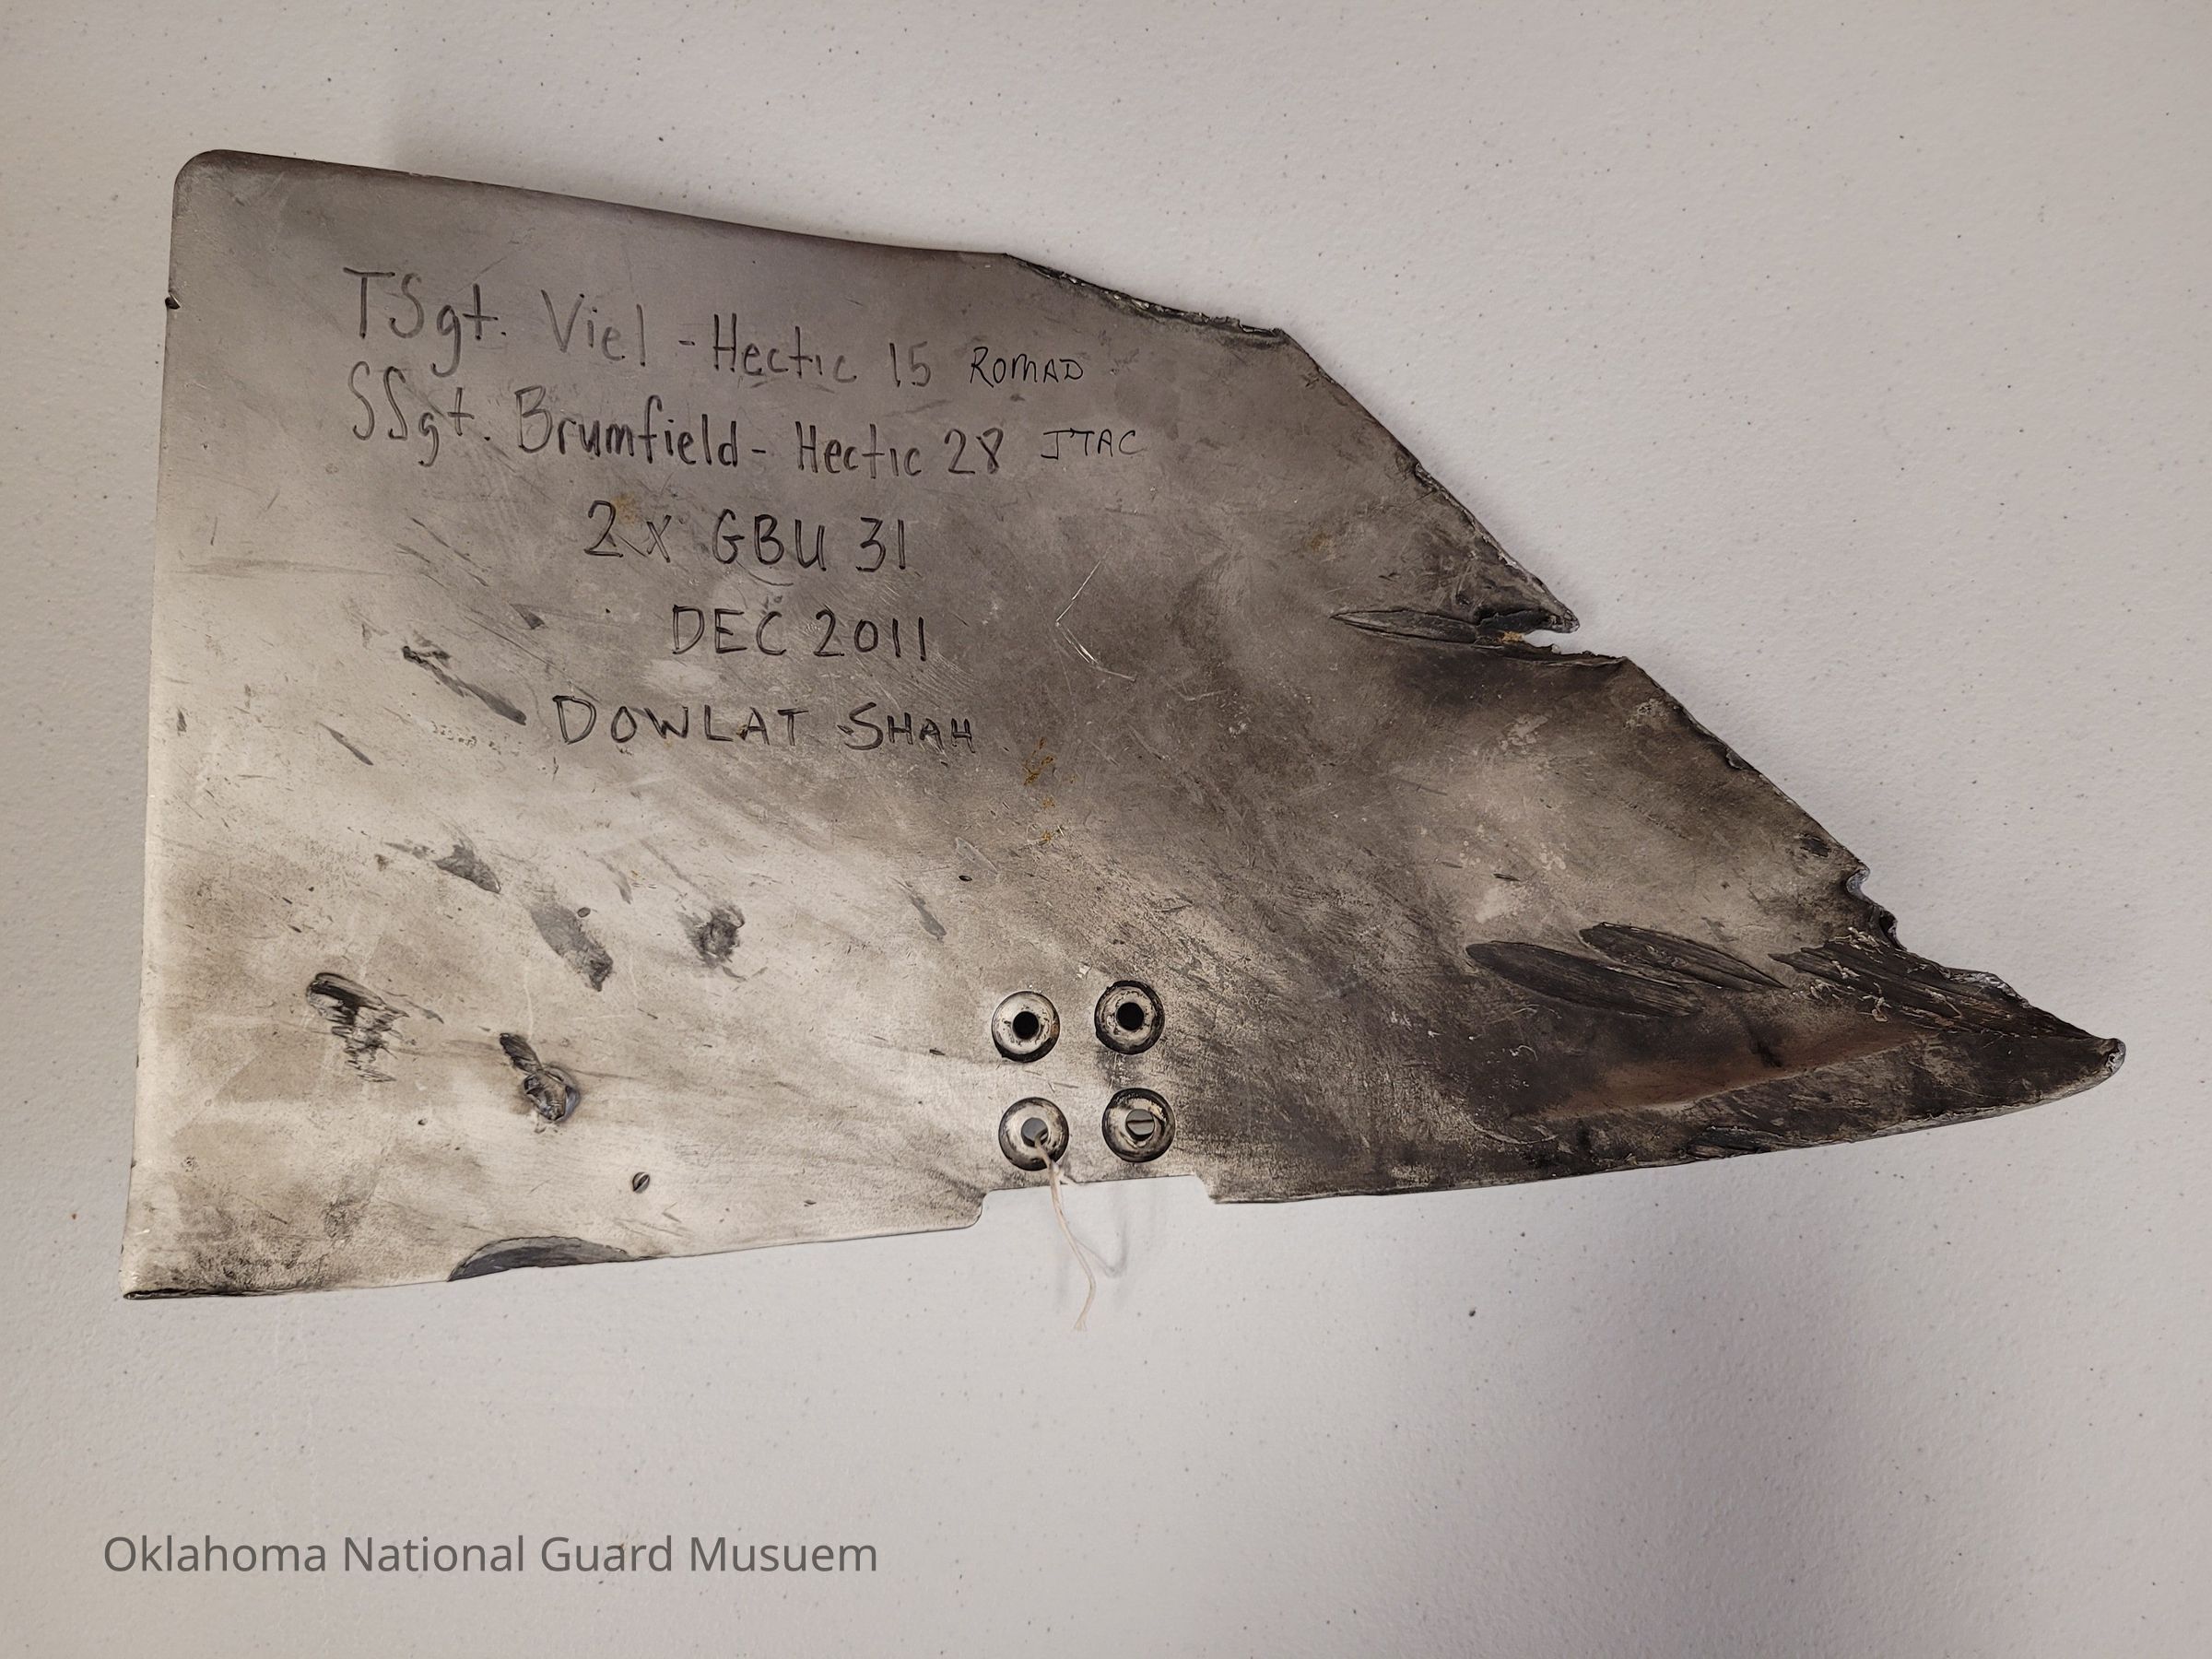 TSgt. Viel - Hectic 15 ROMAD
SSgt. Brumfield - Hectic 28 JTAC
2 x GBU 31
DEC 2011
DOWLAT SHAH
Oklahoma National Guard Musuem